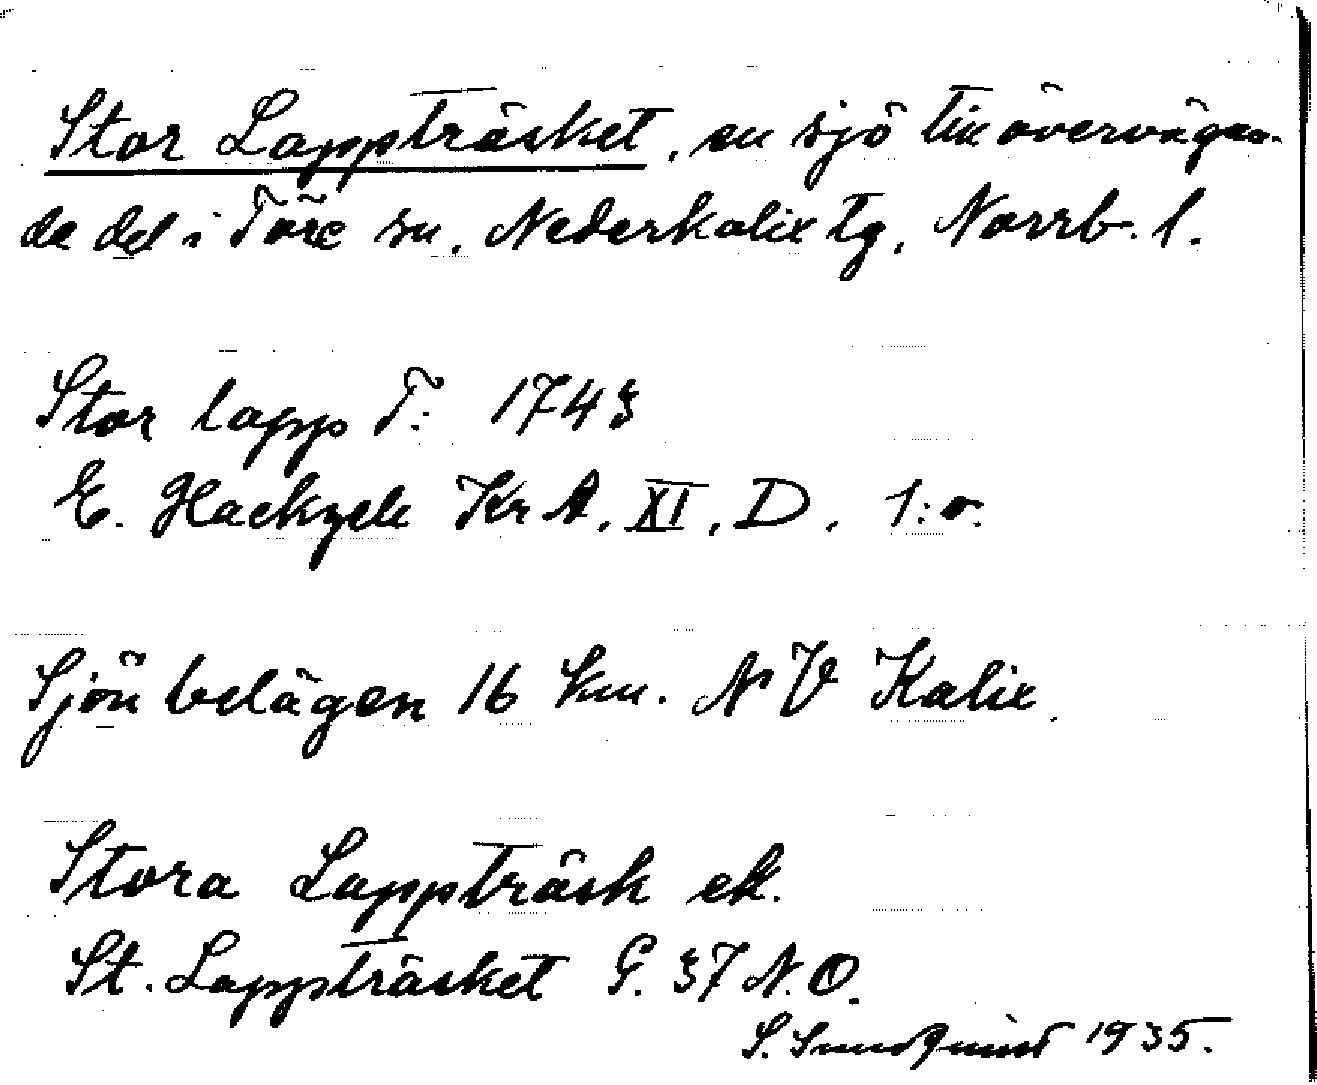 Stor Lappträsket, en sjö till övervägan-
de del i Töre sn, Nederkalix tg, Norrb. l.
Stor lapp T: 1743
E. Hackzell Kr A. XI, D, 1:a.
Sjön belägen 16 km. NV Kalix.
Stora Lappträsk ek.
St. Lappträsket G. 37 N.O.
S. Sundqvist 1935.